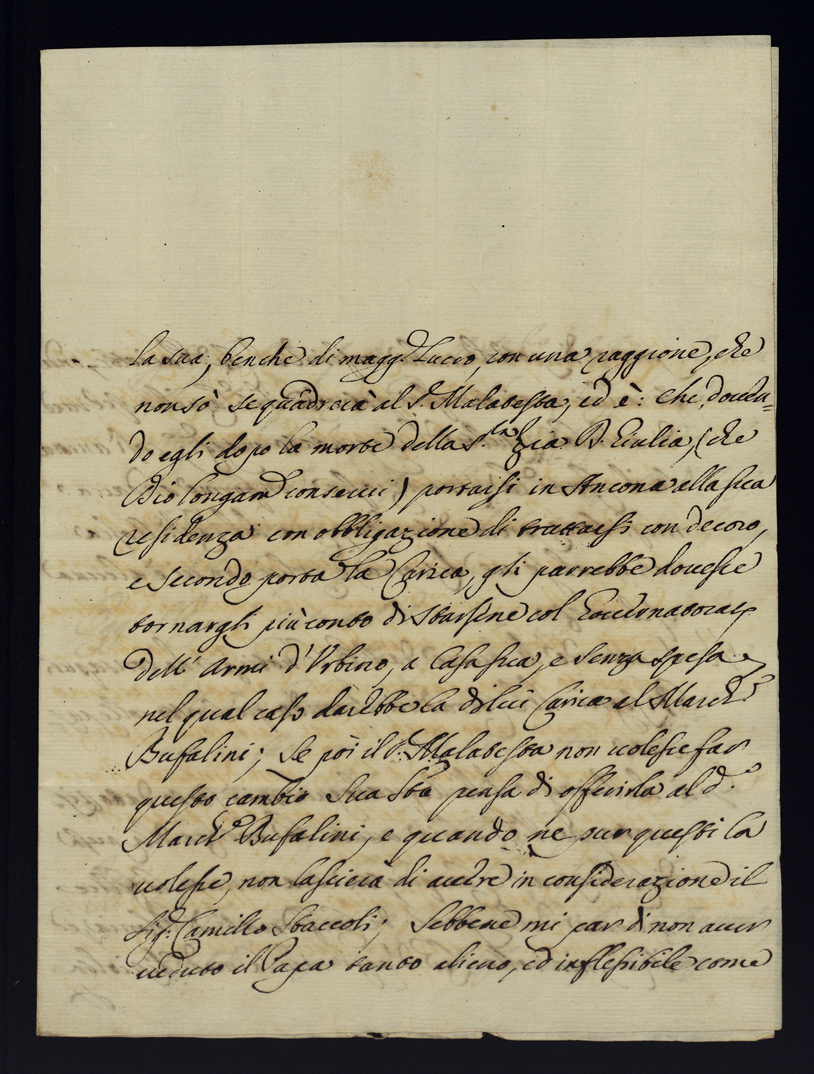 la sua, benche di magg.e Lucro, con una raggione, che
non sò se quadrerà al S.r Malatesta, ed è: che, doven=
do egli dopo la morte della S.ra Zia D. Giulia, (che
Dio longam.e conservi) portarsi in Ancona alla sua
residenza con obbligazione di trattarsi con decoro,
e secondo porta la Carica, gli parrebbe dovesse
tornargli più conto di starsene col Governatorat
dell' Armi d'Urbino, a Casa sua, e senza spesa
nel qual caso darebbe la di lui Carica al March.e
Bufalini; Se poi il S.r Malatesta non volesse far
questo cambio Sua Stà pensa di offerirla al d.o
March.e Bufalini, e quando ne pur questi la
volesse, non lascierà di avere in considerazione il
Sig.r Camillo Staccoli; Sebbene mi par di non aver
veduto il Papa tanto alieno, ed inflessibile come